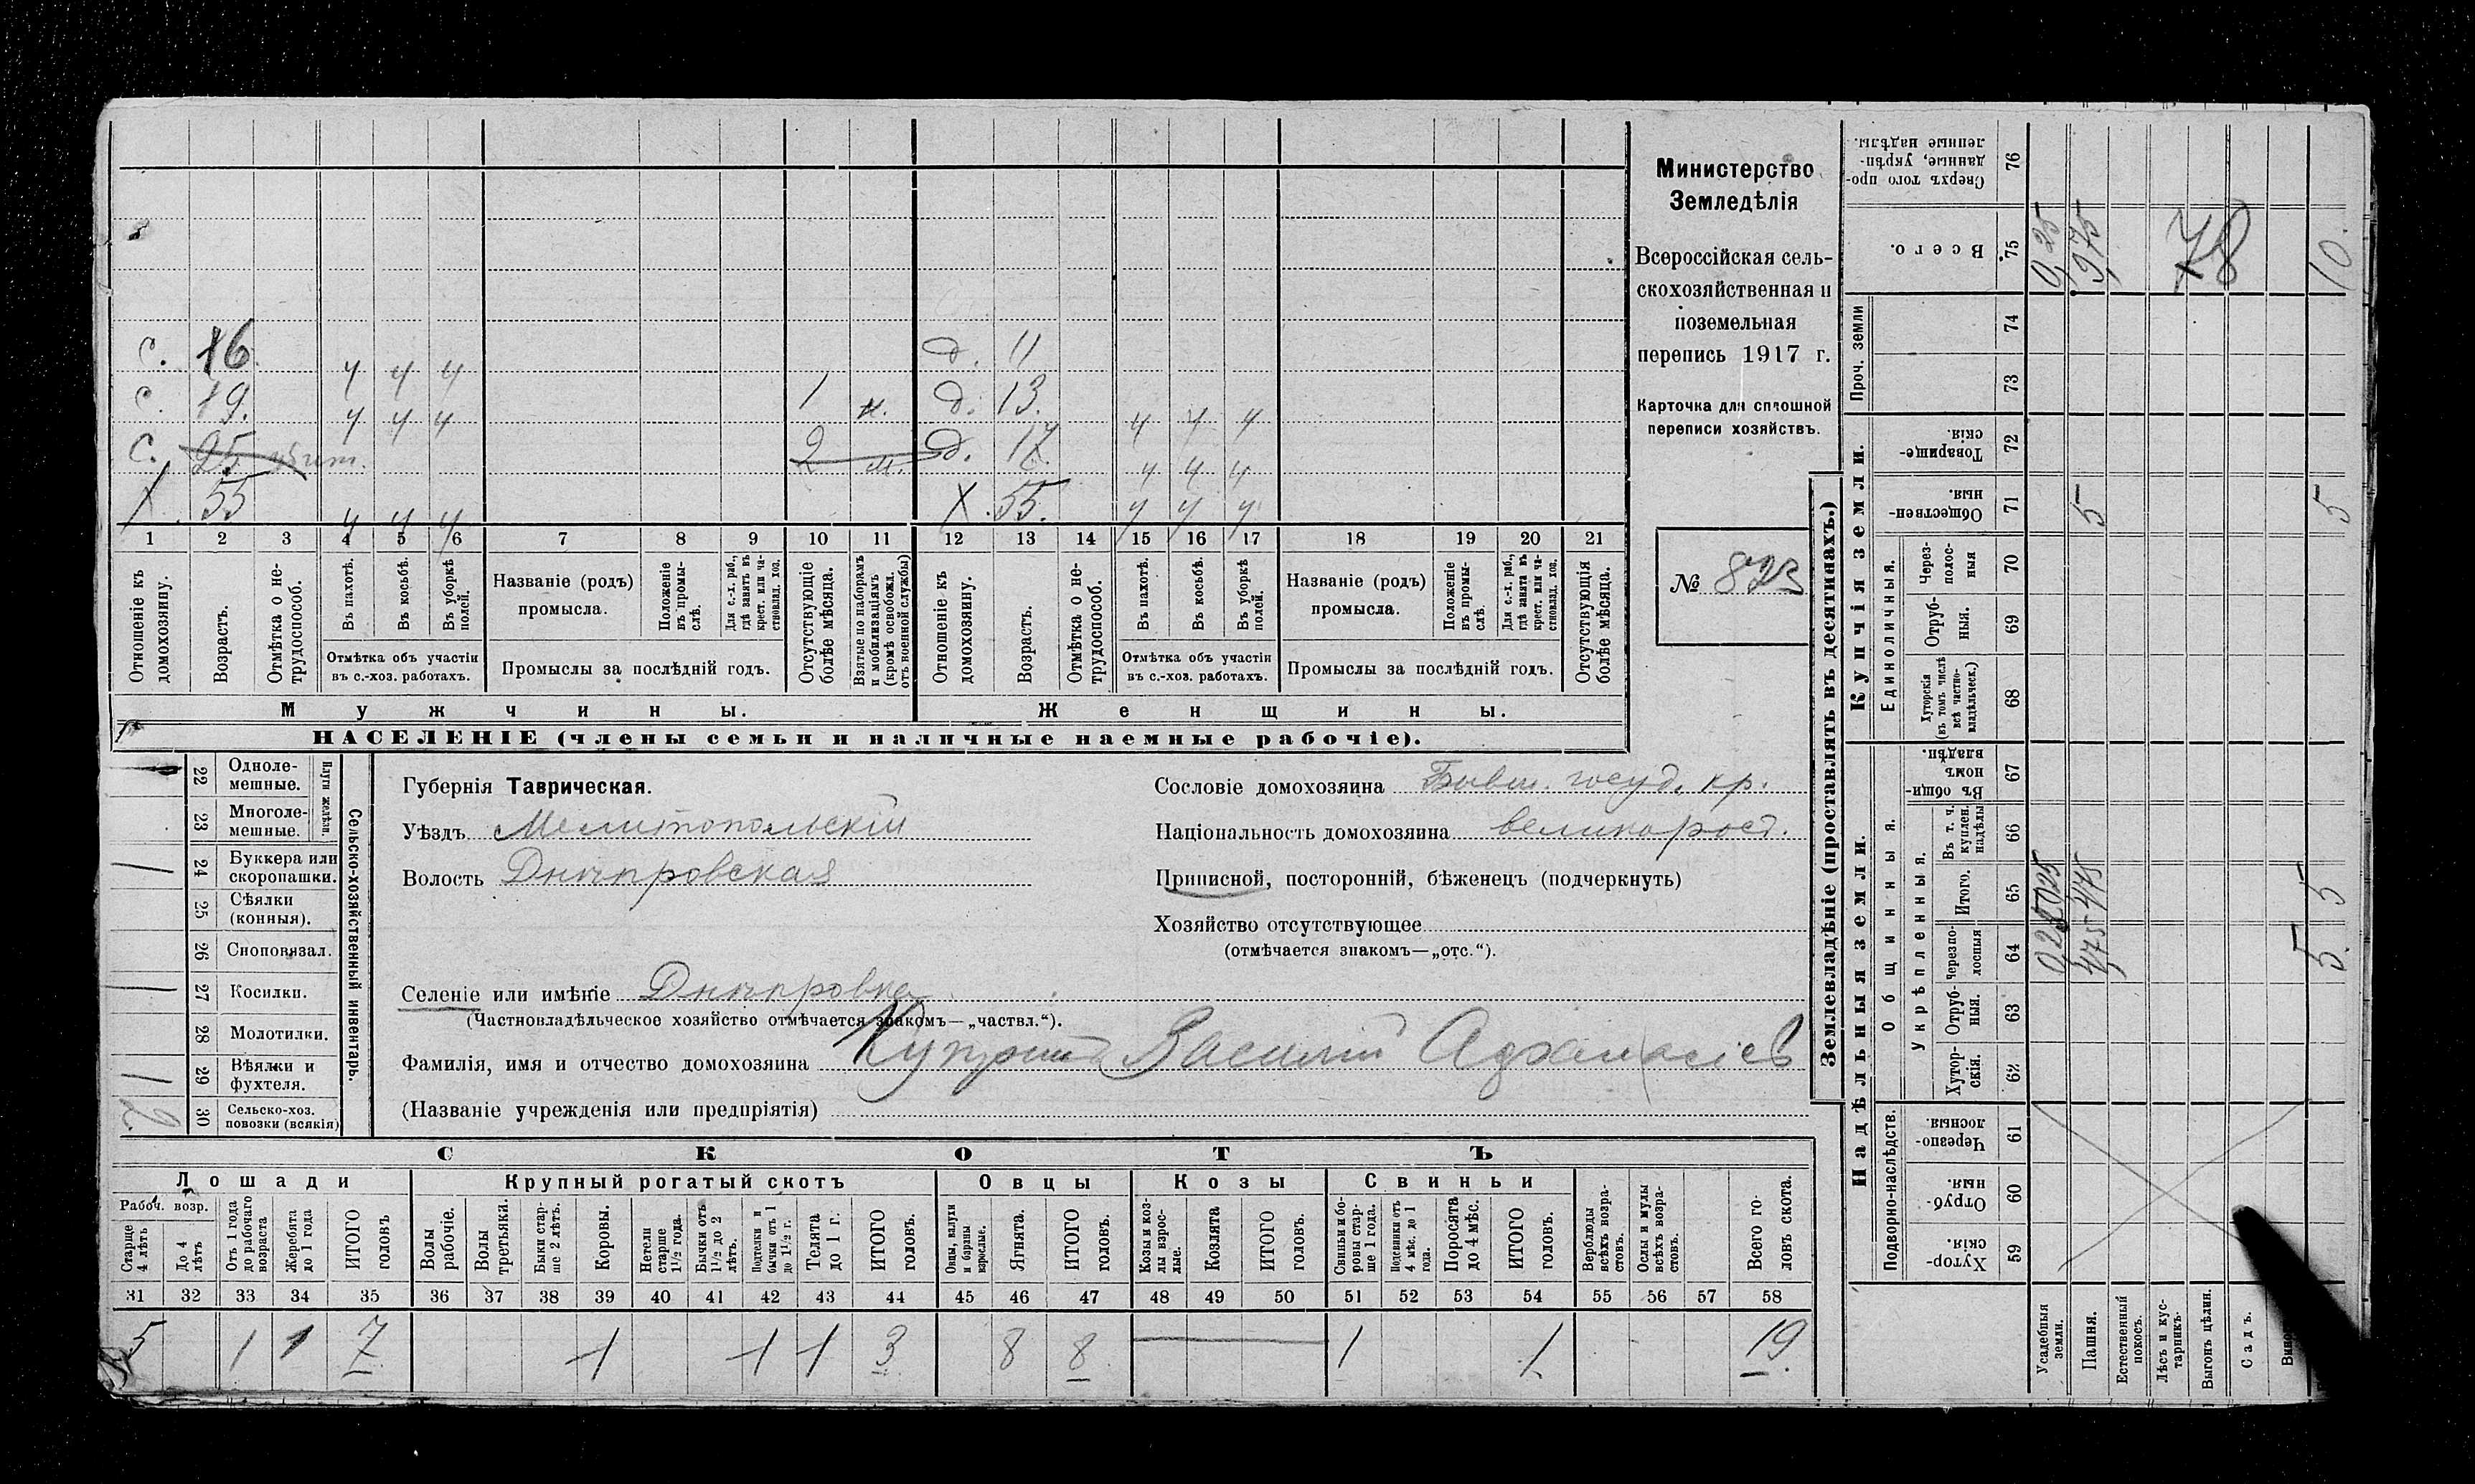 Министерство
Земледѣлія
Всероссійская сель-
скохозяйственная и
поземельная
перепись 1917 г.
Карточка для сплошной
переписи хозяйствъ.
№ 823
с. 16. ч ч ч д. 11
с. 19. ч ч ч 1 м. д. 13. ч ч ч
с. 25 2 м. д. 17. ч ч ч
Х. 55 ч ч ч Х. 55. ч ч ч
1 2 3 4 5 6 7 8 9 10 11 12 13 14 15 16 17 18 19 20 21
Отношеніе къ домохозяину.
Возрастъ.
Отмѣтка о не-трудоспособ.
Въ пахотѣ.
Въ косьбѣ.
Въ уборкѣ полей.
Отмѣтка объ участіи
въ с.-хоз. работахъ.
Названіе (родъ)
промысла.
Положеніе въ промы-слѣ.
Для с.-х. раб., гдѣ занятъ въ крест. или ча-стновлад. хоз.
Промыслы за послѣдній годъ.
Отсутствующіе болѣе мѣсяца.
Взятые по наборамъ и мобилизаціямъ (кромѣ освобожд. отъ военной службы)
Отношеніе къ домохозяину.
Возрастъ.
Отмѣтка о не-трудоспособ.
Въ пахотѣ.
Въ косьбѣ.
Въ уборкѣ полей.
Отмѣтка объ участіи
въ с.-хоз. работахъ.
Названіе (родъ)
промысла.
Положеніе въ промы-слѣ.
Для с.-х. раб., гдѣ занята въ крест. или ча-стновлад. хоз.
Промыслы за послѣдній годъ.
Отсутствующія болѣе мѣсяца.
Мужчины. Женщины.
НАСЕЛЕНІЕ (члены семьи и наличные наемные рабочіе).
Сельско-хозяйственный инвентарь.
Плуги желѣзн.
22 Одноле-мешные.
23 Многоле-мешные.
1 24 Буккера или скоропашки.
25 Сѣялки (конныя).
26 Сноповязал.
1 27 Косилки.
28 Молотилки.
1 29 Вѣялки и фухтеля.
2 30 Сельско-хоз. повозки (всякія)
Губернія Таврическая.
Уѣздъ Мелитопольскій
Волость Днѣпровская
Селеніе или имѣніе Днѣпровка
(Частновладѣльческое хозяйство отмѣчается знакомъ—„частвл.“).
Фамилія, имя и отчество домохозяина Василій
(Названіе учрежденія или предпріятія)
Сословіе домохозяина Бывш. госуд. кр.
Національность домохозяина великорос.
Приписной, посторонній, бѣженецъ (подчеркнуть)
Хозяйство отсутствующее
(отмѣчается знакомъ—„отс.“).
СКОТЪ
Лошади Крупный рогатый скотъ Овцы Козы Свиньи
Рабоч. возр.
Старше 4 лѣтъ
До 4 лѣтъ
Отъ 1 года до рабочаго возраста
Жеребята до 1 года
ИТОГО головъ
Волы рабочіе.
Волы третьяки.
Быки стар-ше 2 лѣтъ.
Коровы.
Нетели старше 1½ года.
Бычки отъ 1½ до 2 лѣтъ.
Подтелки и бычки отъ 1 до 1½ г.
Телята до 1 г.
ИТОГО головъ.
Овцы, валухи и бараны взрослые.
Ягнята.
ИТОГО головъ.
Козы и коз-лы взрос-лые.
Козлята
ИТОГО головъ.
Свиньи и бо-ровы стар-ше 1 года.
Подсвинки отъ 4 мѣс. до 1 года.
Поросята до 4 мѣс.
ИТОГО головъ.
Верблюды всѣхъ возра-стовъ.
Ослы и мулы всѣхъ возра-стовъ.
Всего го-ловъ скота.
31 32 33 34 35 36 37 38 39 40 41 42 43 44 45 46 47 48 49 50 51 52 53 54 55 56 57 58
5 1 1 7 1 1 1 3 8 8 1 1 19.
Землевладѣніе (проставлять въ десятинахъ.)
Купчія земли.
Надѣльныя земли.
Проч. земли
Единоличныя.
Общинныя.
Укрѣпленныя.
Подворно-наслѣдств.
Сверхъ того про-данные, укрѣп-ленные надѣлы. 76
Всего. 75 0,25 9,75 78 10.
74
73
Товарище-скія. 72
Обществен-ныя. 71 5 5
Через-полос-ныя 70
Отруб-ныя. 69
Хуторскія (въ томъ числѣ всѣ частно-владѣльческ.) 68
Въ общи-номъ владѣн. 67
Въ т. ч. куплен. надѣлы 66
Итого. 65 0,25 4,75 5
Черезпо-лосныя 64 0,25 4,75 5.
Отруб-ныя. 63
Хутор-скія. 62
Черезпо-лосныя. 61
Отруб-ныя. 60
Хутор-скія. 59
Усадебныя земли.
Пашня.
Естественный покосъ.
Лѣсъ и кус-тарникъ.
Выгонъ цѣлин.
Садъ.